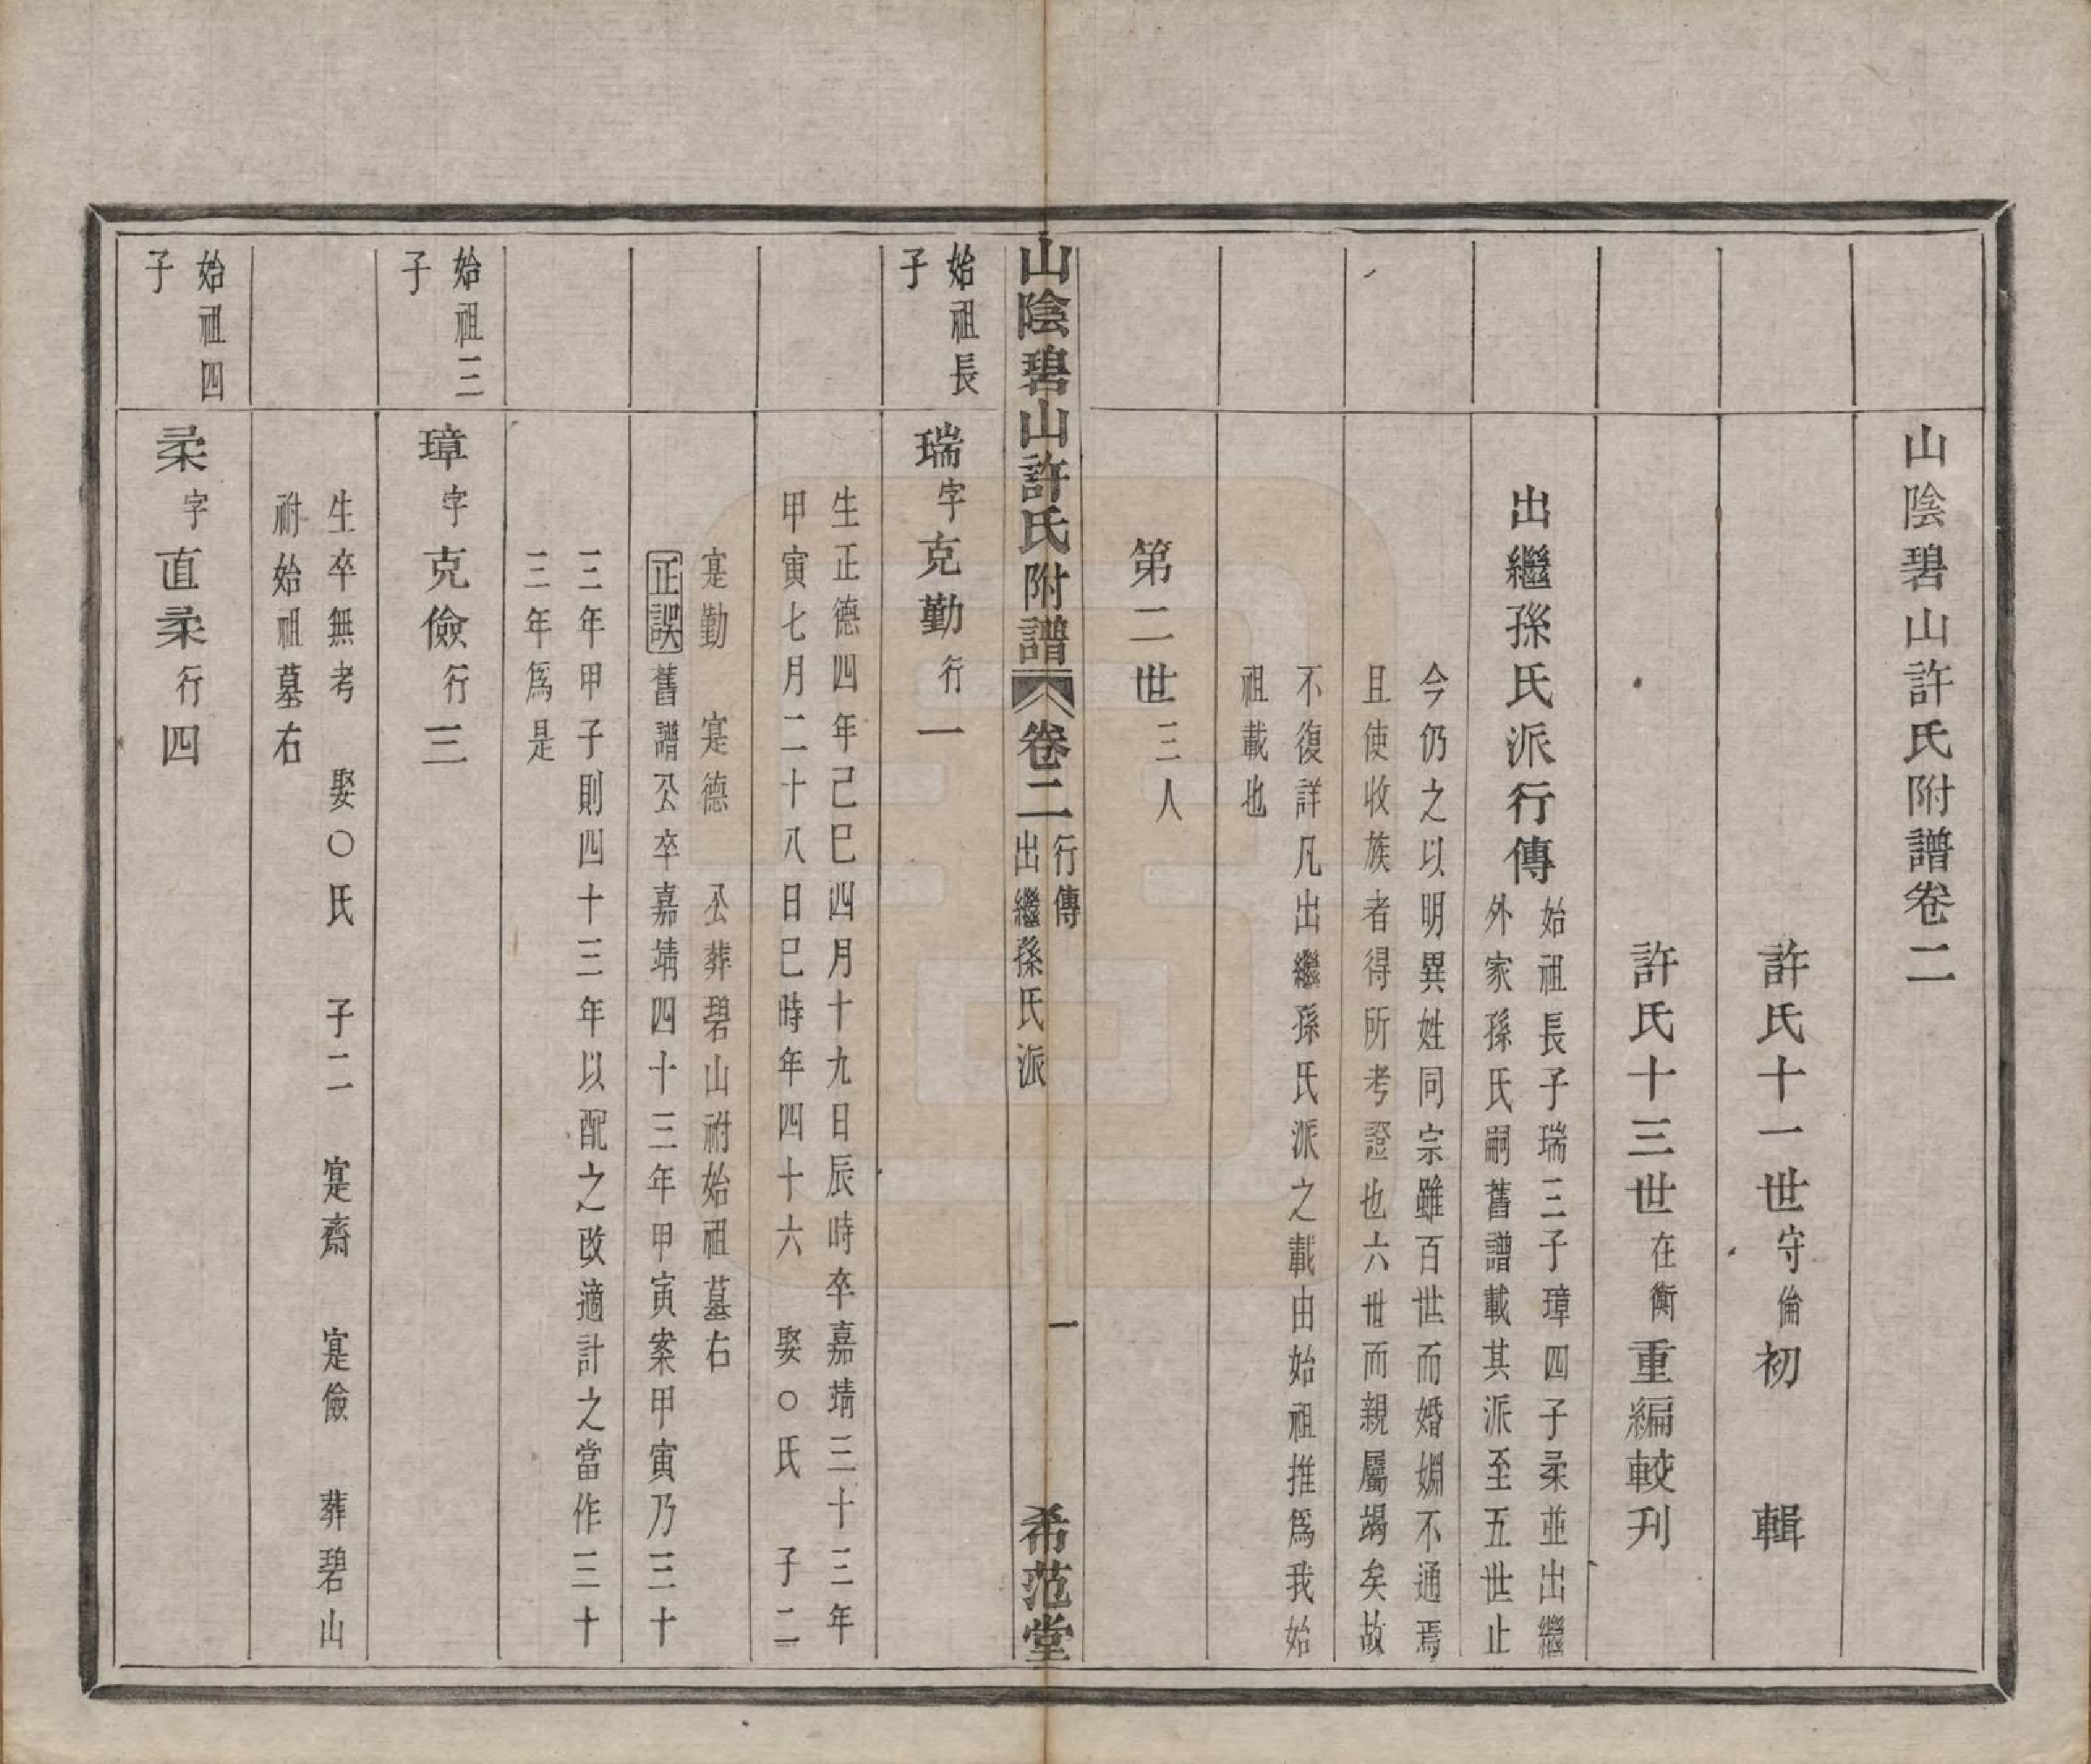 山陰碧山許氏附譜卷二
許氏十一世守倫初 輯
許氏十三世在衡重編較刊
出繼孫氏派行傳
始祖長子瑞三子璋四子柔並出繼
外家孫氏嗣舊譜載其派至五世止
今仍之以明異姓同宗雖百世而婚姻不通焉
且使收族者得所考證也六世而親屬竭矣故
不復詳凡出繼孫氏派之載由始祖推爲我始
祖載也
第二世三人
山陰碧山許氏附譜 卷二 行傳 出繼孫氏派 一 希范堂
始祖長
子
瑞字克勤行一
生正德四年己巳四月十九日辰時卒嘉靖三十三年
甲寅七月二十八日巳時年四十六 娶○氏 子二
寔勤 寔德 公葬碧山祔始祖墓右
正誤舊譜公卒嘉靖四十三年甲寅案甲寅乃三十
三年甲子則四十三年以配之改適計之當作三十
三年爲是
始祖三
子
璋字克儉行三
生卒無考 娶○氏 子二 寔齋 寔儉 葬碧山
祔始祖墓右
始祖四
子
柔字直柔行四